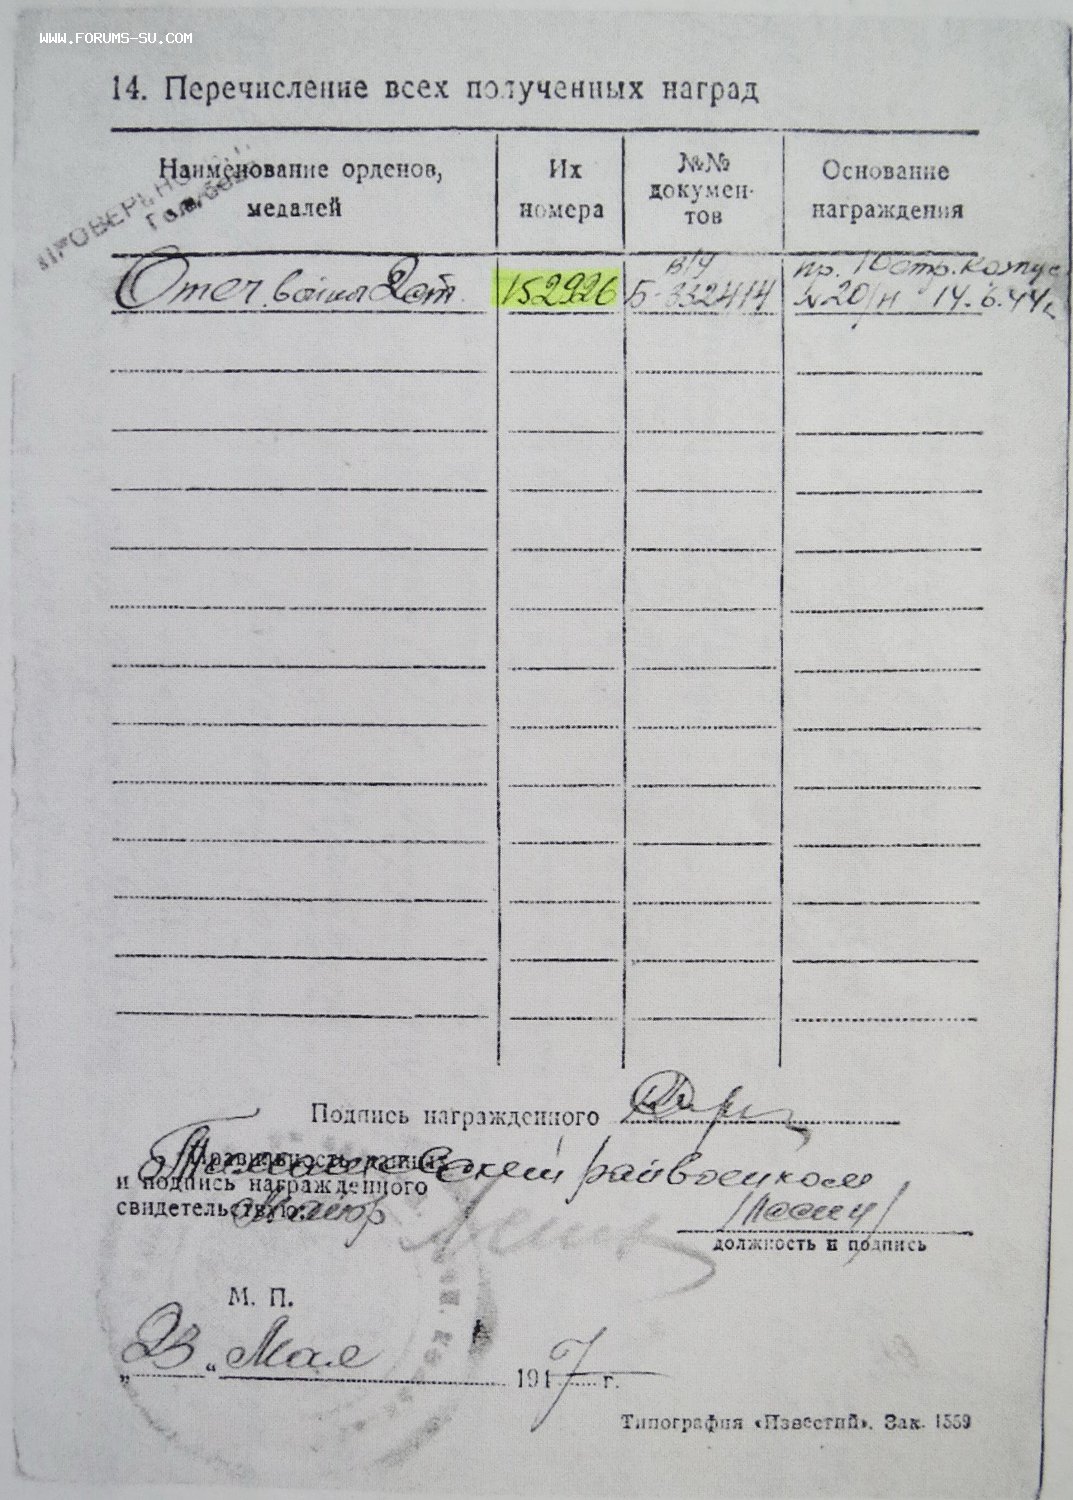 WWW.FORUMS-SU.COM
14. Перечисление всех полученных наград
Наименование орденов, медалей
Их номера
№№ докумен-тов
Основание награждения
Отеч. войны 2 ст.
152926
в/у Б-332414
пр. 10 стр. Корпуса № 20/н 14.6.44г.
Подпись награжденного
Правильность данных
и подпись награжденного
свидетельствую:
райвоенком
Майор
должность и подпись
М. П.
„23“ Мая 1947 г.
Типография «Известий». Зак. 1559